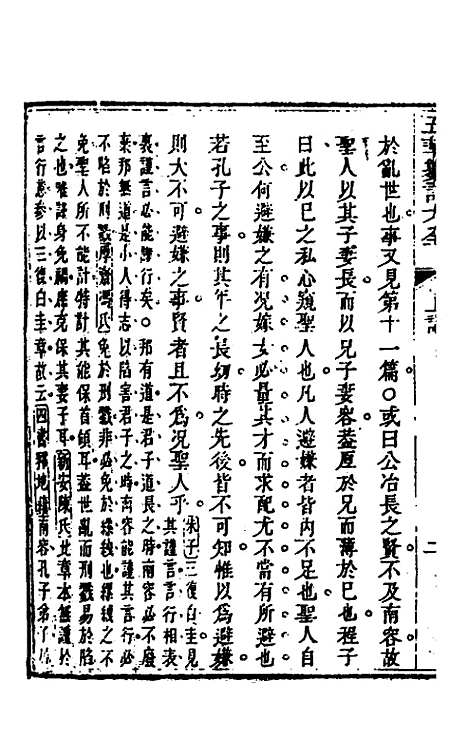 於亂世也事又見第十一篇○或曰公冶長之賢不及南容故
聖人以其子妻長而以兄子妻容葢厚於兄而薄於己也程子
曰此以己之私心窺聖人也凡人避嫌者皆內不足也聖人自
至公何避嫌之有況嫁女必量其才而求配尤不當有所避也
若孔子之事則其年之長幼時之先後皆不可知惟以爲避嫌
則大不可避嫌之事賢者且不爲況聖人乎
朱子三復白圭見
其謹言言行相表
裏謹言必能謹行矣○邦有道是君子道長之時南容必不廢
棄邦無道是小人得志以陷害君子之時南容能謹其言行必
不陷於刑戮
馮氏
免於刑戮非必免於縲絏也縲絏之不
免聖人所不能計特計其能保首領耳葢世亂而刑戮易於陷
之也唯謹身免禍庶克保其妻子耳
新安陳氏
此章本無謹於
言行意參以三復白圭章故云
四書釋地
南容孔子弟子